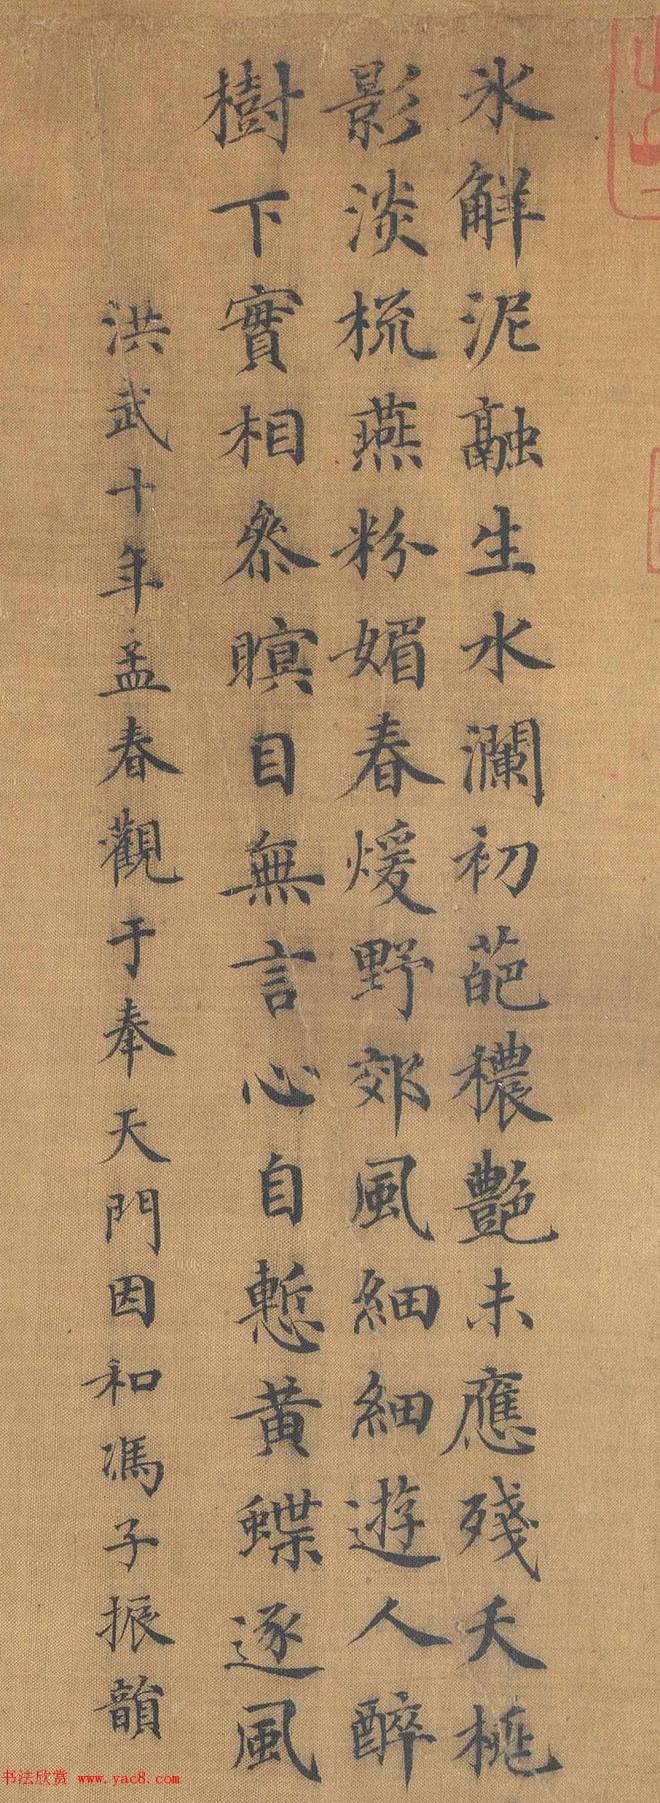 氷觧泥融生水瀾初葩穠艷未應殘夭桃
影淡梳燕粉媚春煖野郊風細細遊人醉
樹下實相叅瞑目無言心自慙黄蝶逐風
洪武十年孟春觀于奉天門因和馮子振韻
书法欣赏 www.yac8.com